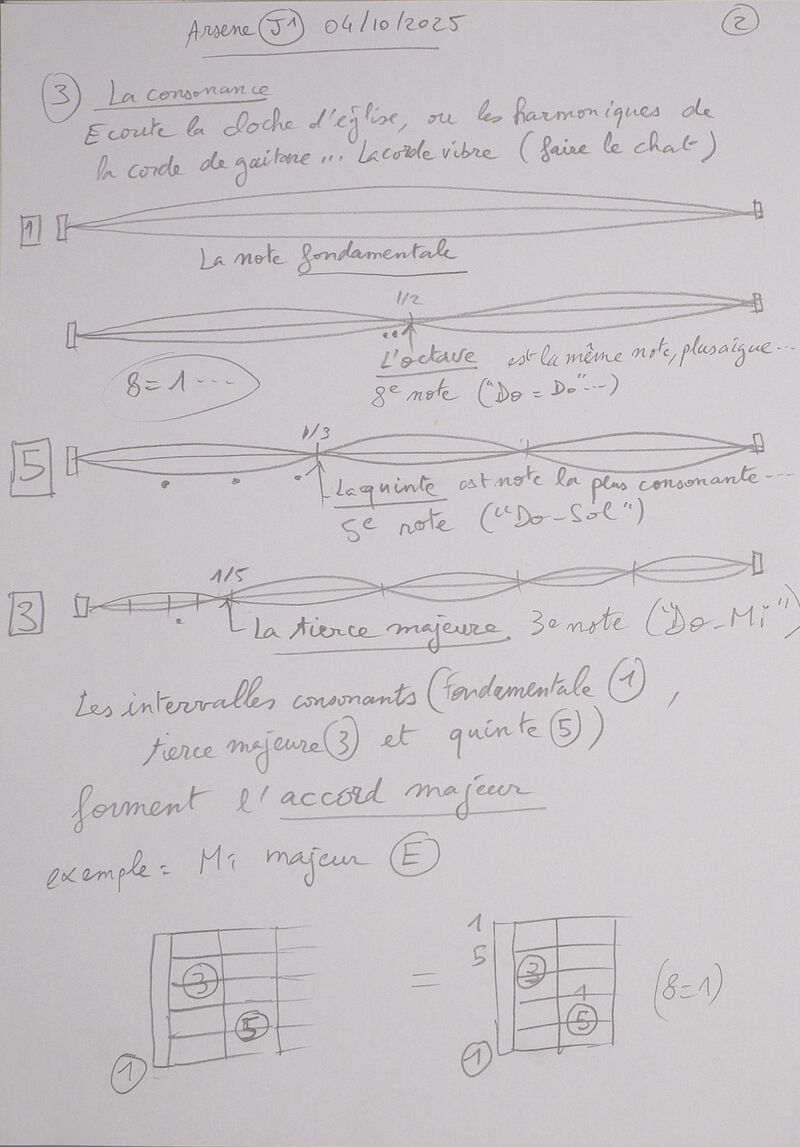 Arsene J1 04/10/2025
2
3 La consonance
Ecoute la cloche d'église, ou les harmoniques de
la corde de guitare ... La corde vibre (faire le chat)
1
La note fondamentale
1/2
L'octave est la même note, plus aigue...
8 = 1 ...
8e note ("Do = Do"...)
1/3
5
La quinte est note la plus consonante...
5e note ("Do-Sol")
1/5
3
La tierce majeure, 3e note ("Do-Mi")
Les intervalles consonants (fondamentale 1,
tierce majeure 3 et quinte 5)
forment l'accord majeur
exemple = Mi majeur E
1
5
3 = 3 (8=1)
1
5 5
1 1